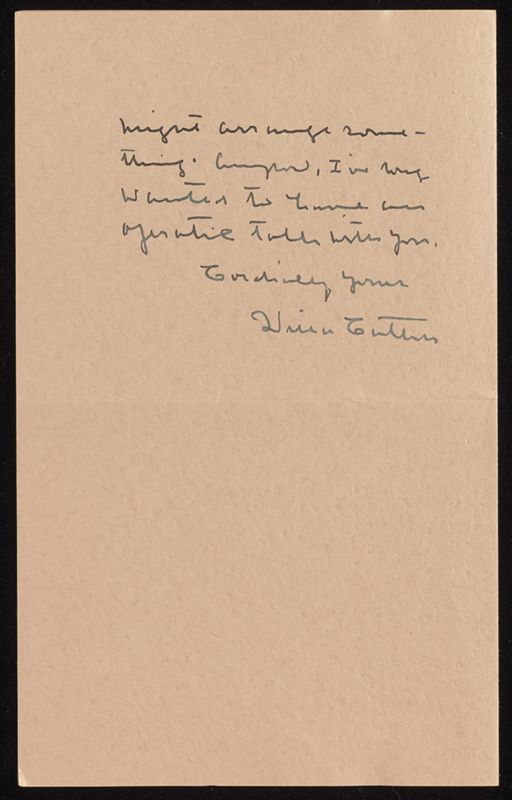 might arrange some-
thing. Anyhow, I've long
wanted to have an
operatic talk with you.
Cordially yours
Willa Cather